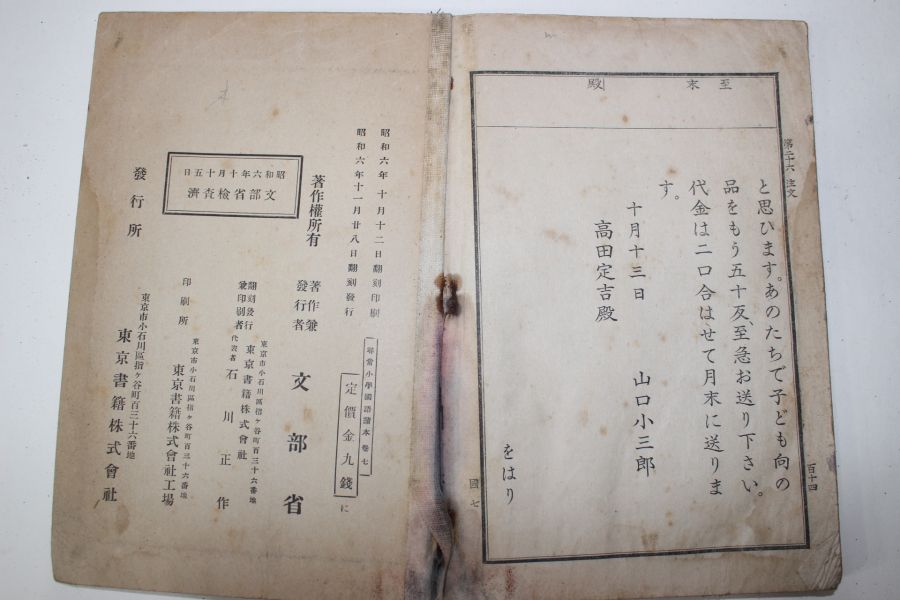 第二十六 注文
百十四
至
末
殿
と思ひます。あのたちで子ども向の
品をもう五十反、至急お送り下さい。
代金は二口合はせて月末に送りま
す。
十月十三日
山口小三郎
高田定吉殿
をはり
國七
昭和六年十月十二日翻刻印刷
昭和六年十一月廿八日翻刻發行
尋常小學國語讀本 卷七
定價金九錢
に
著作權所有
著作兼
發行者
文部省
東京市小石川區指ケ谷町百三十六番地
翻刻發行
兼印刷者
東京書籍株式會社
代表者
石川正作
昭和六年十月十五日
文部省檢查濟
東京市小石川區指ケ谷町百三十六番地
印刷所
東京書籍株式會社工場
發行所
東京市小石川區指ケ谷町百三十六番地
東京書籍株式會社